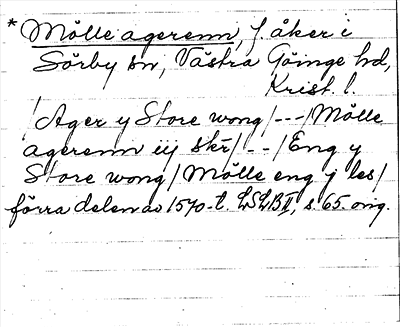 * Mölle agerenn, f. åker i
Sörby sn, Västra Göinge hd,
Krist. l.
/Ager y Store wong/---/Mölle
agerenn iij skr/--/Eng y
Store wong/Mölle eng j les/
förra delen av 1570-t. LSLBII, s. 65. orig.